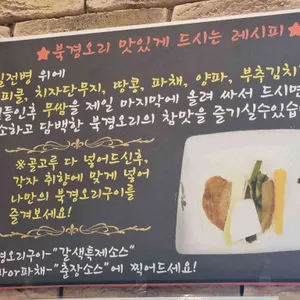 ★북경오리 맛있게 드시는 레시피★
밀전병 위에
피클, 치자단무지, 땅콩, 파채, 양파, 부추김치
들인후 무쌈을 제일 마지막에 올려 싸서 드시면
소하고 담백한 북경오리의 참맛을 즐기실수있습
※골고루 다 넣어드신후,
각자 취향에 맞게 넣어
나만의 북경오리구이를
즐겨보세요!
경오리구이-"갈색특제소스"
파채-"춘장소스"에 찍어드세요!